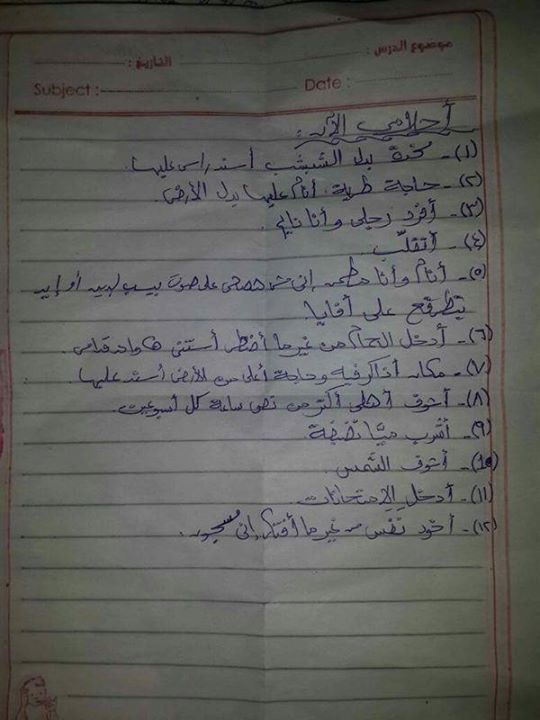 موضوع الدرس : التاريخ :
Subject : Date :
أحلامي الآن :
(١) - مخدة بدل الشبشب أسند راسي عليها.
(٢) - حاجة طرية أنام عليها بدل الأرض.
(٣) - أفرد رجلي وأنا نايم.
(٤) - أتقلّب
(٥) - أنام وأنا مطمن إني مش هصحى على صوت بيسب لدين أو إيد
تطرقع على أفايا
(٦) - أدخل الحمام من غير ما أضطر أستنى ٤٠ واحد قدامي.
(٧) - مكان أذاكر فيه وحاجة أعلى من الأرض أسند عليها.
(٨) - أشوف أهلي أكتر من نص ساعة كل أسبوعين.
(٩) - أشرب ميّا نضيفة
(١٠) - أشوف الشمس.
(١١) - أدخل الإمتحانات
(١٢) - أخود نفس من غير ما أفتكر إني مسجون.